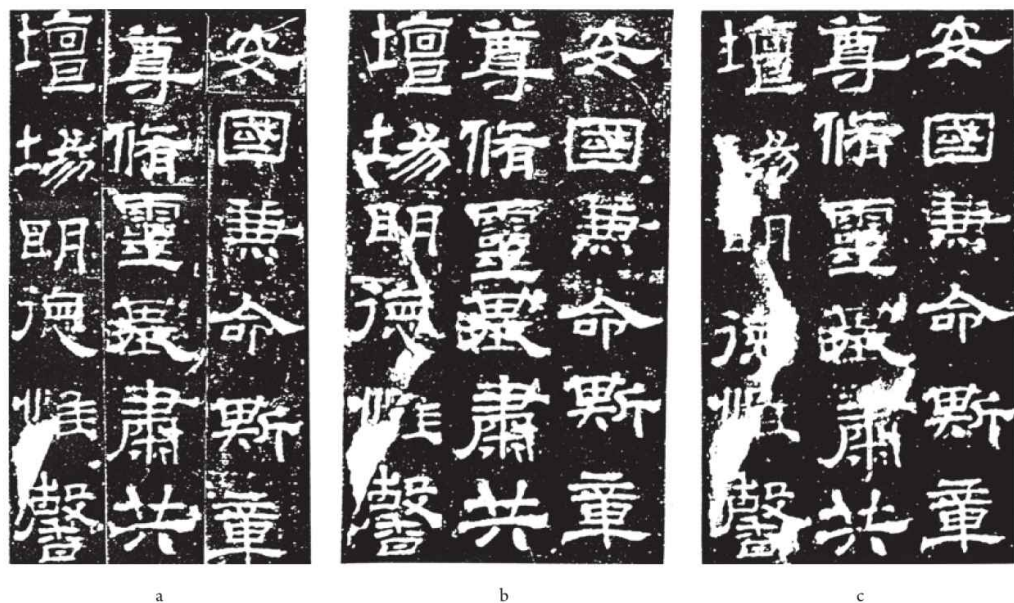 安國兼命斯章
尊脩靈基肅共
壇場明德惟馨
a
安國兼命斯章
尊脩靈基肅共
壇場明德惟馨
b
安國兼命斯章
尊脩靈基肅共
壇場明德惟馨
c